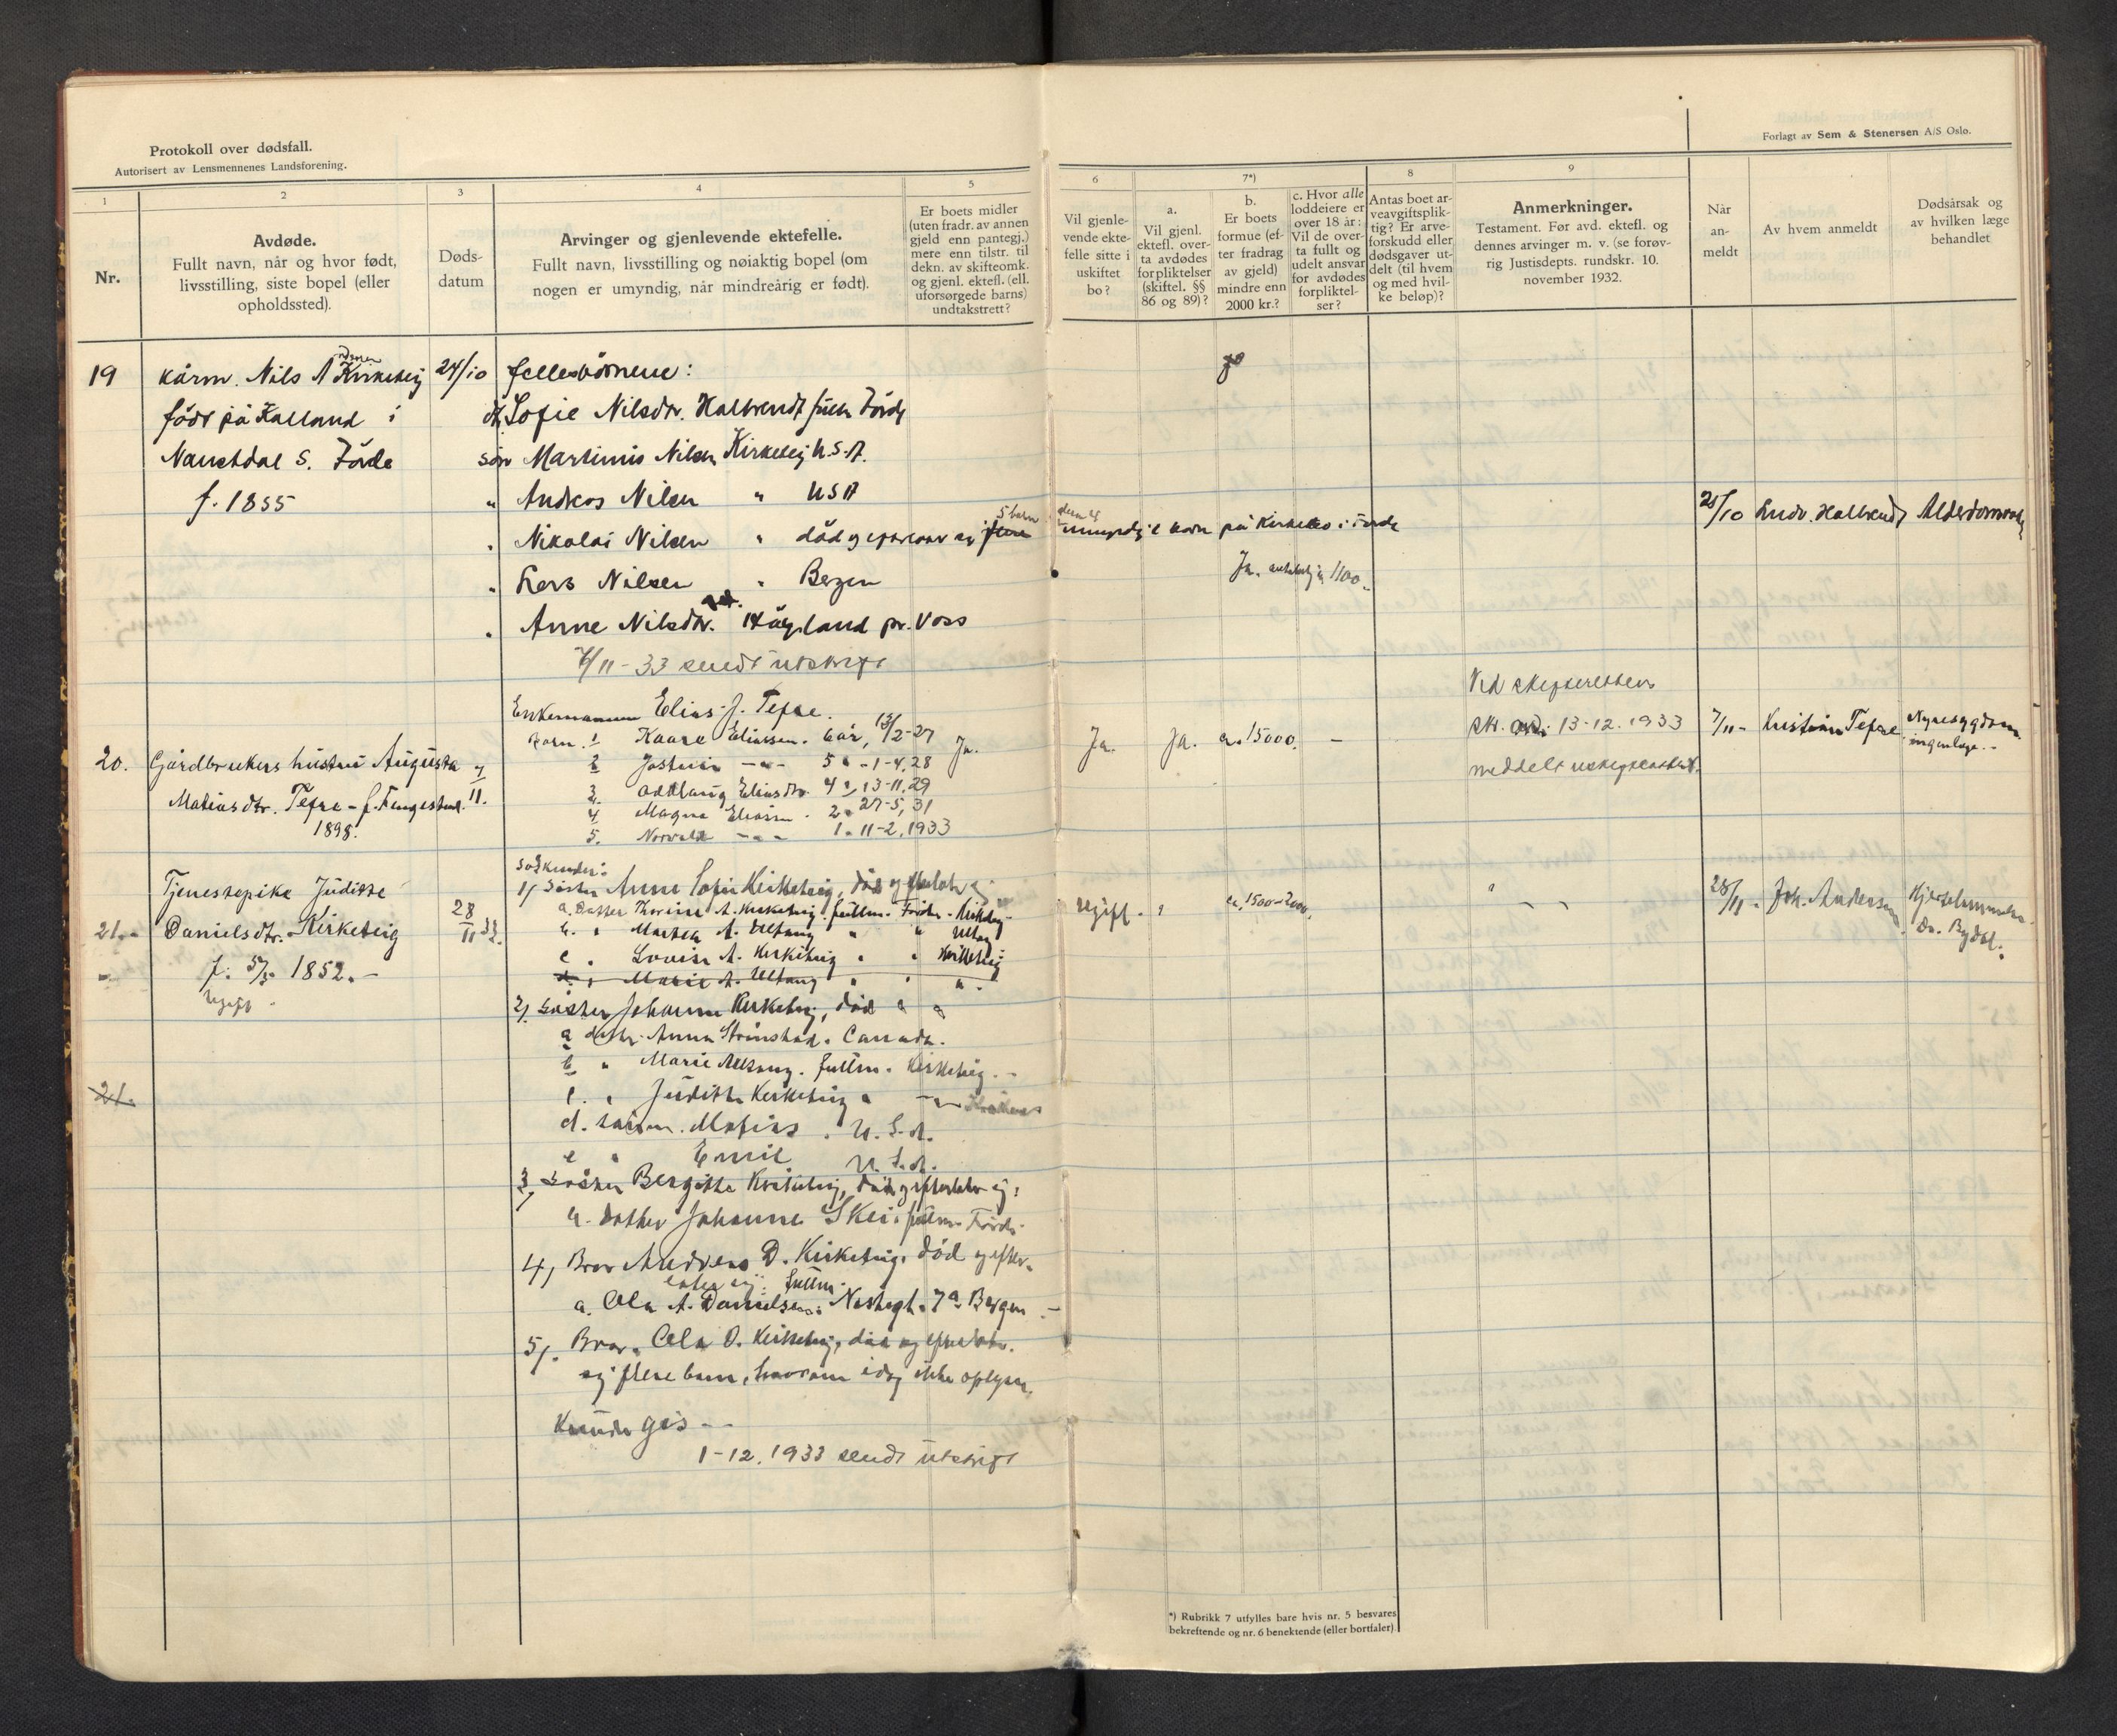 Protokoll over dødsfall.
Autorisert av Lensmennenes Landsforening.
Forlagt av Sem & Stenersen A/S Oslo.
1
2
3
4
5
6
7*)
8
9
Nr.
Avdøde.
Fullt navn, når og hvor født,
livsstilling, siste bopel (eller
opholdssted).
Døds-
datum
Arvinger og gjenlevende ektefelle.
Fullt navn, livsstilling og nøiaktig bopel (om
nogen er umyndig, når mindreårig er født).
Er boets midler
(uten fradr. av annen
gjeld enn pantegj.)
mere enn tilstr. til
dekn. av skifteomk.
og gjenl. ektefl. (ell.
uforsørgede barns)
undtakstrett?
Vil gjenle-
vende ekte-
felle sitte i
uskiftet
bo?
a.
Vil gjenl.
ektefl. over-
ta avdødes
forpliktelser
(skiftel. §§
86 og 89)?
b.
Er boets
formue (ef-
ter fradrag
av gjeld)
mindre enn
2000 kr.?
c. Hvor alle
loddeiere er
over 18 år:
Vil de over-
ta fullt og
udelt ansvar
for avdødes
forpliktel-
ser?
Antas boet ar-
veavgiftsplik-
tig? Er arve-
forskudd eller
dødsgaver ut-
delt (til hvem
og med hvil-
ke beløp)?
Anmerkninger.
Testament. Før avd. ektefl. og
dennes arvinger m. v. (se forøv-
rig Justisdepts. rundskr. 10.
november 1932.
Når
an-
meldt
Av hvem anmeldt
Dødsårsak og
av hvilken læge
behandlet
19
kårm. Nils A Kirketeig
født på Kalland i
Naustdal S. Förde
f. 1855
24/10
fellesbörnene:
Sofie Nilsdtr. Halbrendt fullm Förde
sön Martinius Nilsen Kirketeig U.S.A.
" Andreas Nilsen " USA
" Nikolai Nilsen " död og efterlater sig 5 barn
umyndige barn på Kirketeig i Förde
" Lars Nilsen " Bergen
" Anne Nilsdtr. Hægland pr. Voss
7/11-33 sendt utskrift
Ja. 1100.-
28/10 Ludv. Halbrendt Alderdomsvak
20.
Gårdbrukers hustru Augusta
Matiasdtr. Tefre - f. Fengestad
1898.
7/11.
Enkemannen Elias J. Tefre.
Barn. 1 Kaare Eliassen. 6 år, 13/2-27
2 Jostein -"- 5 " 1-4.28
3. Oddlaug Eliasdtr. 4 " 13-11.29
4. Magne Eliassen. 2 " 27-5.31
5. Norvald -"- 1 " 11-2.1933
Ja.
Ja.
Ja.
ca. 15000.
-
Ved skifterettens
skr. 13-12.1933
meddelt uskifteattest.
7/11- Kristian Tefre
Nyresygdom
ingen læge.-
21.-
Tjenestepike Juditte
Danielsdtr. Kirketeig
f. 5/5 1852.-
Ugift.
28/11 33.
Söskender:
1) Söster Anne Sofie Kirketeig, död og efterlater sig
a. Datter Thorine A. Kirketeig. fullm. Förde. Kirketeig
b. " Marten A. Ultang " " Ultang
c. " Lovise A. Kirketeig " " Kirketeig
d. " Marie A. Ultang " " "
2) Söster Johanne Kirketeig, död " "
a datter Anna Strömstad. Canada.
b " Marie Ultang. fullm. Kirketeig.-
c. " Judith Kirketeig " -"-
d. sönn. Matias. U.S.A.
e " Emil U.S.A.
3) Söster Bergitte Kirketeig, död og efterlater sig:
a. Datter Johanne Skei. fullm. Förde.
4) Bror Andreas D. Kirketeig. død og efter-
later sig: fullm.
a. Ola A. Danielsen. Nostegt. 7a Bergen.-
5). Bror. Ola D. Kirketeig, död og efterlater.
sig flere barn, hvorom idag ikke oplysn.
kunde gis--
1-12.1933 sendt utskrift
21.
ugift.
ca. 1500-2000.
"
28/11. Joh. Andersen
Dr. Bydal.
*) Rubrikk 7 utfylles bare hvis nr. 5 besvares
bekreftende og nr. 6 benektende (eller bortfaler)